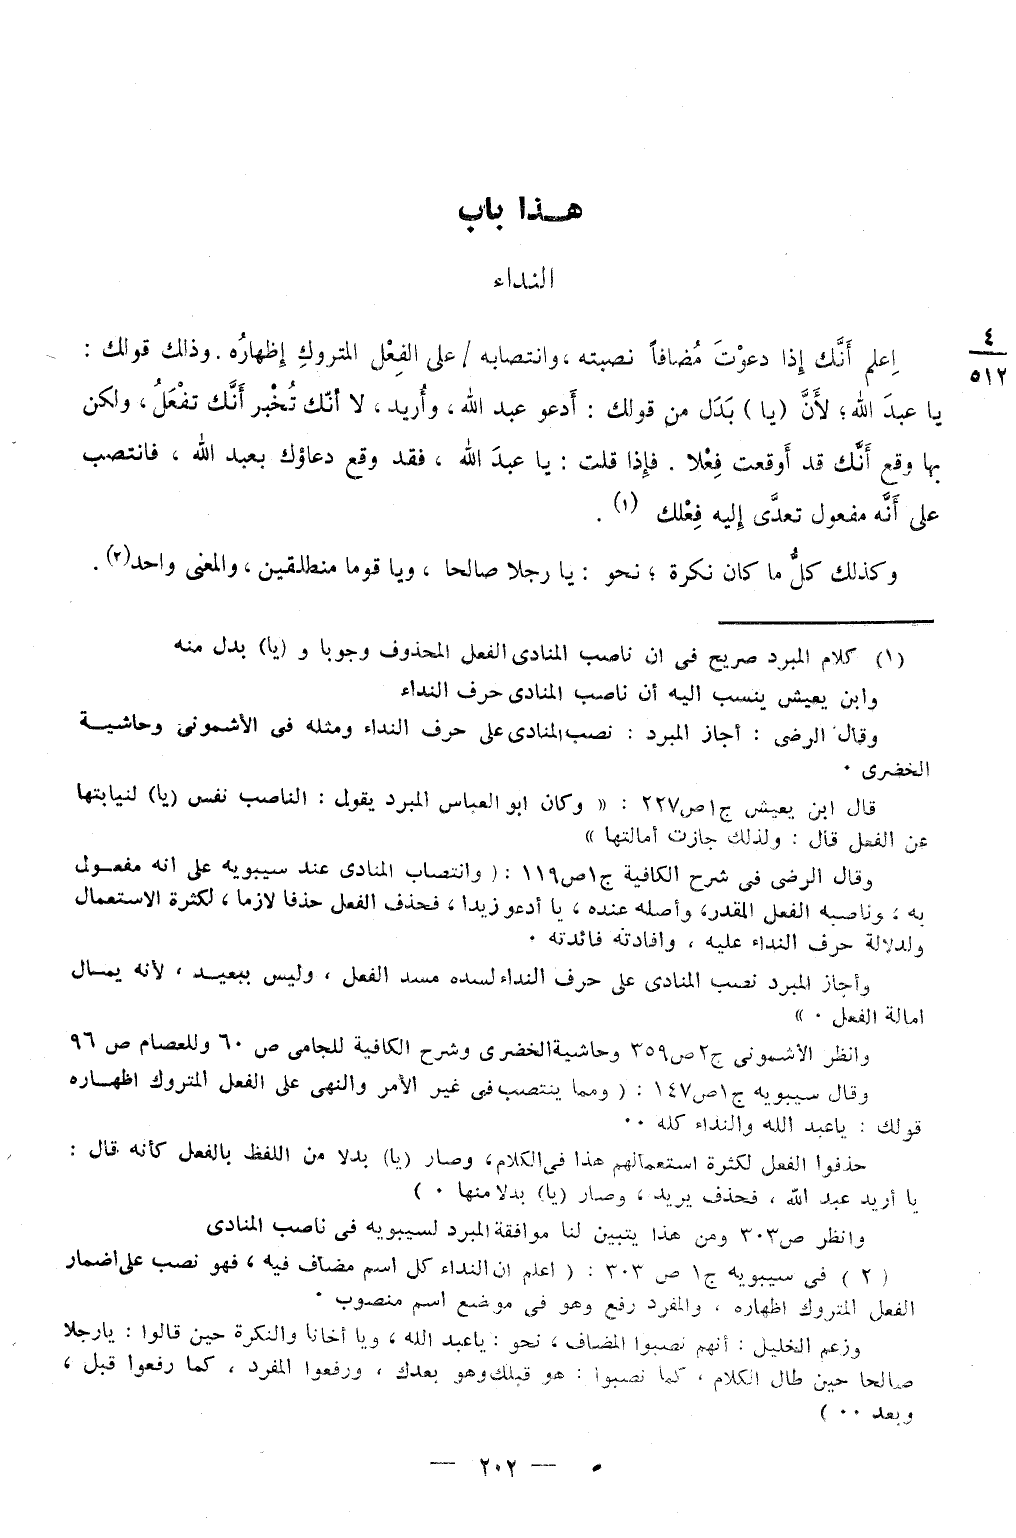 هـذا باب
النداء
٤
٥١٢
اِعلم أَنَّك إِذا دعوْتَ مُضافاً نصبته ، وانتصابه / على الفِعْل المتروكِ إِظهارُه . وذلك قولك :
يا عبدَ الله ؛ لأَنَّ ( يا ) بَدَل من قولك : أَدعو عبد الله ، وأُريد ، لا أَنّك تُخْبر أَنَّك تفْعَلُ ، ولكن
بها وقع أَنَّك قد أَوقعت فِعْلا . فإِذا قلت : يا عبدَ الله ، فقد وقع دعاؤك بعبد الله ، فانتصب
على أَنَّه مفعول تعدَّى إِليه فِعْلك (١) .
وكذلك كلُّ ما كان نكرة ؛ نحو : يا رجلا صالحا ، ويا قوما منطلقين ، والمعنى واحد (٢) .
(١) كلام المبرد صريح فى ان ناصب المنادى الفعل المحذوف وجوبا و (يا) بدل منه
وابن يعيش ينسب اليه أن ناصب المنادى حرف النداء
وقال الرضى : أجاز المبرد : نصب المنادى على حرف النداء ومثله فى الأشمونى وحاشيـة
الخضرى ٠
قال ابن يعيش ج١ص٢٢٧ : « وكان ابو العباس المبرد يقول : الناصب نفس (يا) لنيابتها
عن الفعل قال : ولذلك جازت أمالتها »
وقال الرضى فى شرح الكافية ج١ص١١٩ : ( وانتصاب المنادى عند سيبويه على انه مفعـول
به ، وناصبه الفعل المقدر، وأصله عنده ، يا أدعو زيدا ، فحذف الفعل حذفا لازما ، لكثرة الاستعمال
ولدلالة حرف النداء عليه ، وافادته فائدته ٠
وأجاز المبرد نصب المنادى على حرف النداء لسده مسد الفعل ، وليس ببعيـد ، لأنه يمـال
امالة الفعل ٠ »
وانظر الأشمونى ج٢ص٣٥٩ وحاشية الخضرى وشرح الكافية للجامى ص ٦٠ وللعصام ص ٩٦
وقال سيبويه ج١ص١٤٧ : ( ومما ينتصب فى غير الأمر والنهى على الفعل المتروك اظهـاره
قولك : ياعبد الله والنداء كله ٠٠
حذفوا الفعل لكثرة استعمالهم هذا فى الكلام، وصار (يا) بدلا من اللفظ بالفعل كأنه قال :
يا أريد عبد الله ، فحذف يريد ، وصار (يا) بدلا منها ٠ )
وانظر ص٣٠٣ ومن هذا يتبين لنا موافقة المبرد لسيبويه فى ناصب المنادى
( ٢ ) فى سيبويه ج١ ص ٣٠٣ : ( اعلم ان النداء كل اسم مضاف فيه ، فهو نصب على اضمار
الفعل المتروك اظهاره ، والمفرد رفع وهو فى موضع اسم منصوب ٠
وزعم الخليل : أنهم نصبوا المضاف ، نحو : ياعبد الله ، ويا أخانا والنكرة حين قالوا : يارجلا
صالحا حين طال الكلام ، كما نصبوا : هو قبلك وهو بعدك ، ورفعوا المفرد ، كما رفعوا قبل ،
وبعد ٠٠ )
— ٢٠٢ —